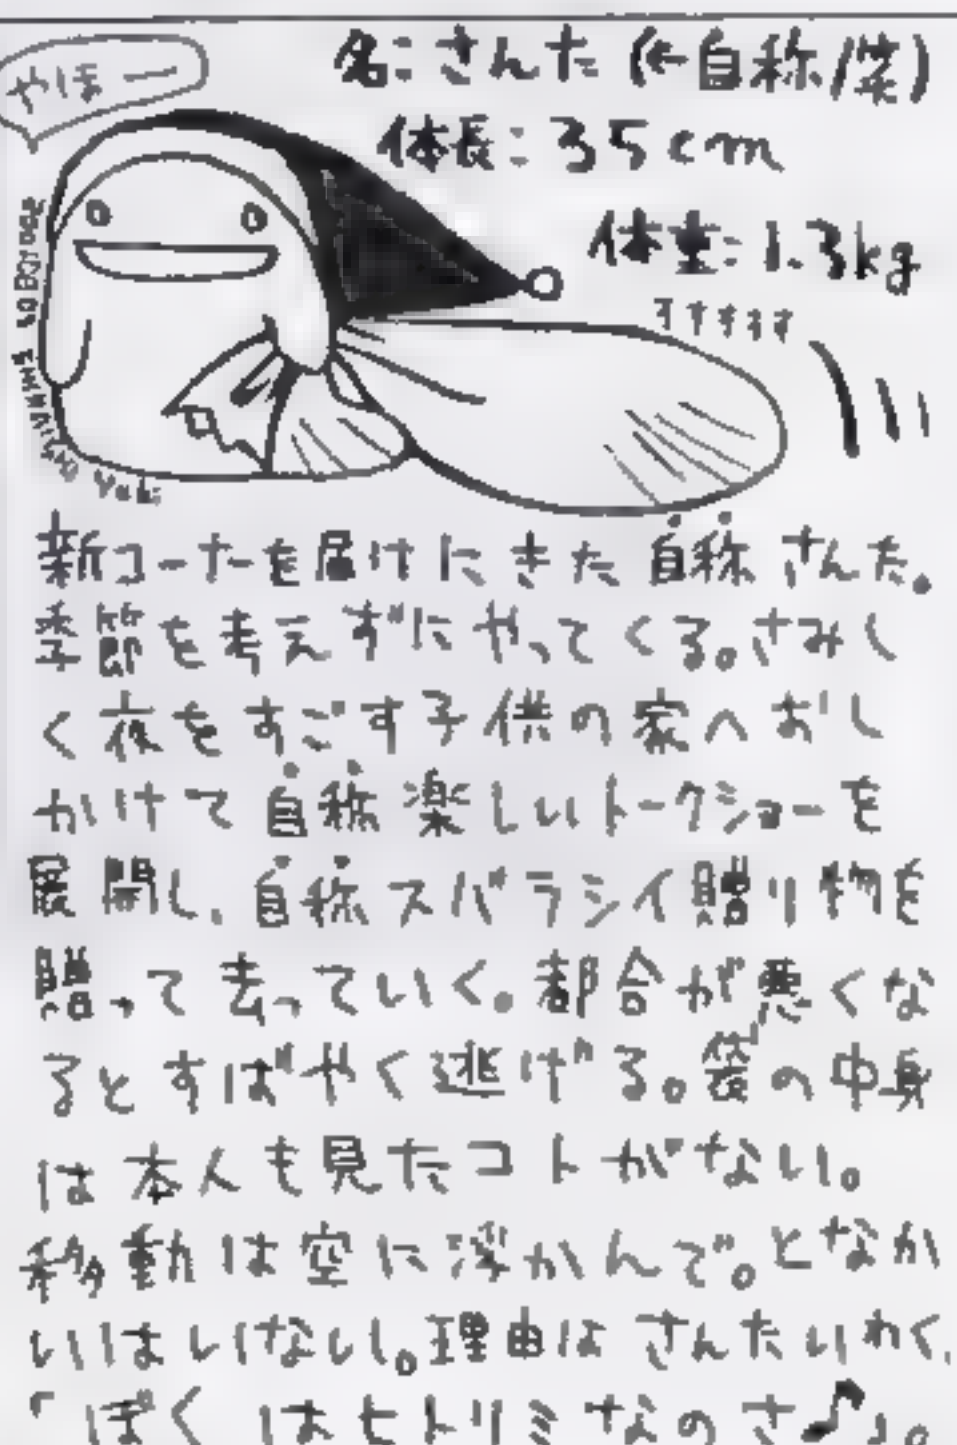 やほー
名:さんた(←自称/笑)
体長:35cm
体重:1.3kg
すすすすす
Yuki
新コーナーを届けにきた自称さんた。
季節を考えずにやってくる。さみし
く夜をすごす子供の家へおし
かけて自称楽しいトークショーを
展開し、自称スバラシイ贈り物を
贈って去っていく。都合が悪くな
るとすばやく逃げる。袋の中身
は本人も見たコトがない。
移動は空に浮かんで。となか
いはいない。理由はさんたいわく、
「ぼくはヒトリミなのさ♪」。